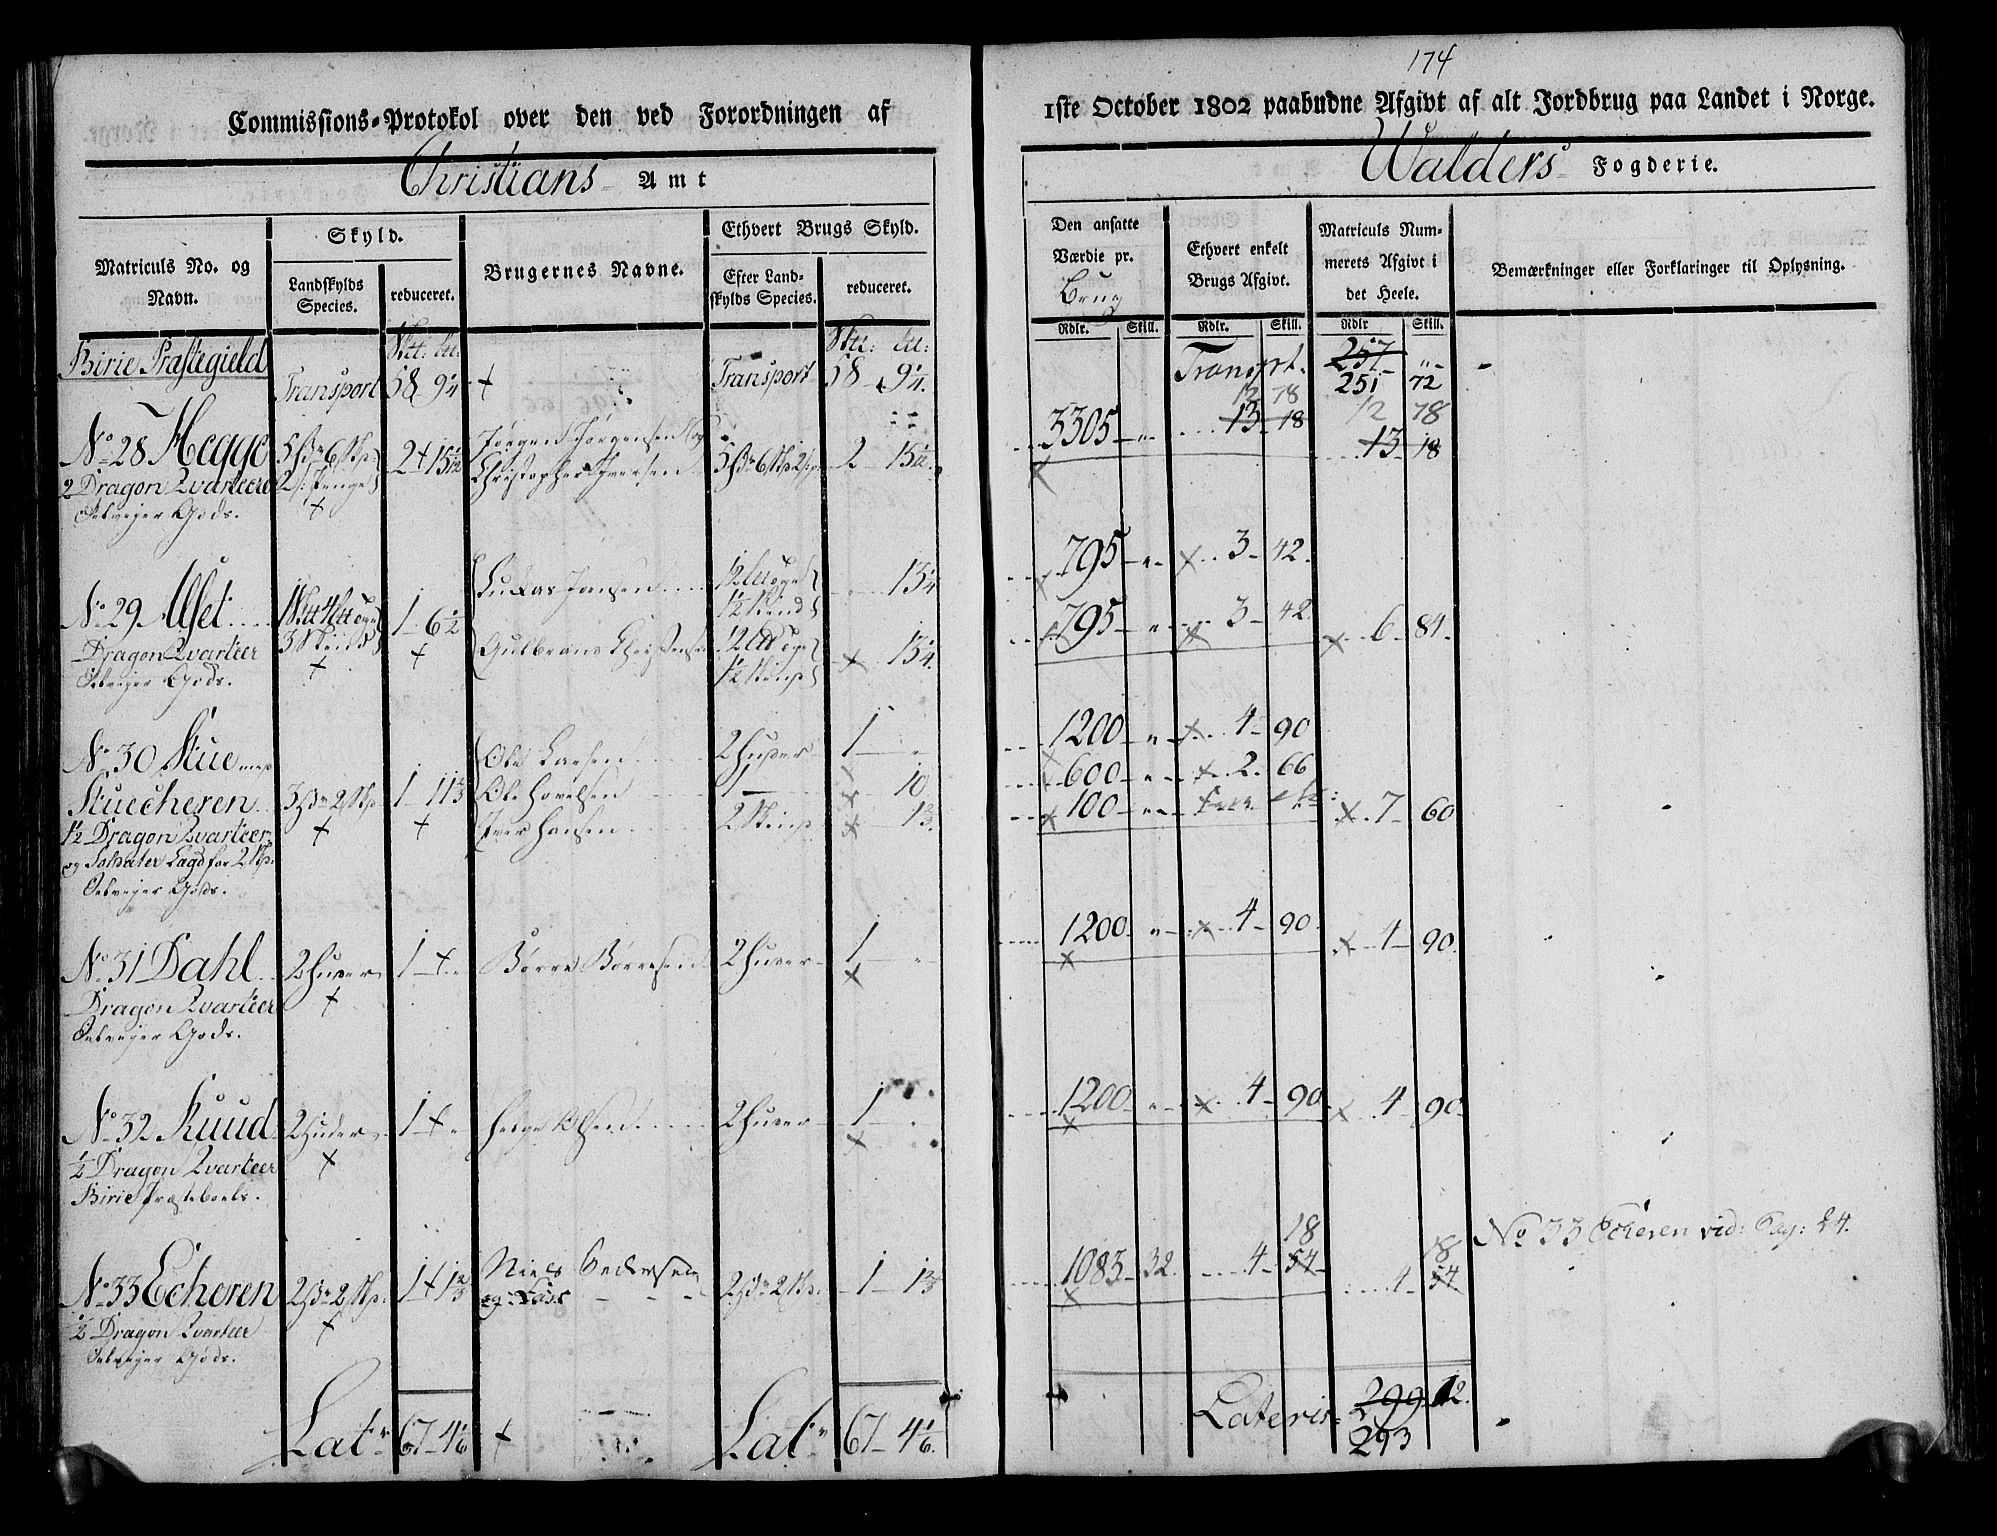 174
Commissions-Protokol over den ved Forordningen af
1ste October 1802 paabudne Afgivt af alt Jordbrug paa Landet i Norge.
Christians Amt
Walders Fogderie.
Matriculs No. og Navn.
Skyld.
Landskylds Species.
reduceret.
Brugernes Navne.
Ethvert Brugs Skyld.
Efter Landskylds Species.
reduceret.
Den ansatte Værdie pr. Brug
Ethvert enkelt Brugs Afgivt.
Matriculs Nummerets Afgivt i det Heele.
Bemærkninger eller Forklaringer til Oplysning.
Rdlr. Skill. Rdlr. Skill. Rdlr Skill.
Birie Præstegield
Transport 58 9¼ Transport 58 9¼.
Transprt. 257 „
251 72
12 78 12 78
No 28 Hegge 2 15 1/12 Jørgen Jørgensen og
Christopher Iversen 2 15 1/12
3305 „ 13 18 13 18
2 Dragon Qvarteer
Selveyer Gods.
No 29 Alset 1 6½
Lucas Jansen 13¼
795 „ 3 42.
Gulbrand Christensen 13¼.
795 „ 3 42 6 84.
Dragon Qvarteer
Selveyer Gods.
No 30 Stue
Ole Larsen 2 Huder 1 „
1200 „ 4 90
Stuecheren 1 11⅓
Ole Hovelsen 1 10
600 „ 2. 66
Iver Hansen 1⅓.
100 „ 7 60
1½ Dragon Qvarteer
og Soldater Lagd for 2 Skp.
Selveyer Gods.
No 31 Dahl 2 Huder 1 „ Børre Børresen 2 Huder 1 „
1200 „ 4 90. 4 90.
Dragon Qvarteer
Selveyer Gods.
No 32 Ruud 2 Huder 1 „ Helge Olsen 2 Huder 1 „
1200 „ 4 90 4 90
½ Dragon Qvarteer
Birie Præsteboels.
No 33 Echeren 1 1⅓ Niels Pedersen 1 1⅓
18 18
1083 32. 4 54 4 54
No 33 Echeren vid: Pag: 24.
½ Dragon Qvarteer
Selveyer Gods.
Lat 67 4⅙ Lat 67 4⅙.
Lateris 299 12.
293